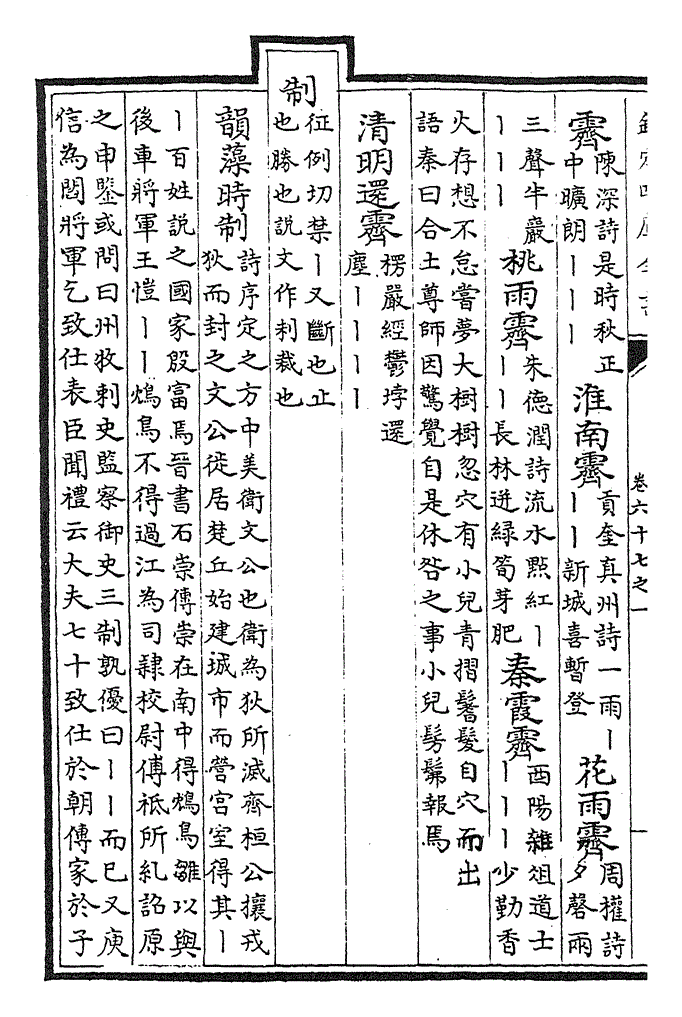 欽定四庫全書 卷六十七之一
霽 陳深詩是時秋正
中曠朗丨丨丨
淮南霽 貢奎真州詩一雨丨
丨丨新城喜暫登
花雨霽 周權詩
夕磬雨
三聲牛巖
丨丨丨
桃雨霽 朱德潤詩流水點紅丨
丨丨長林迸綠筍芽肥
秦霞霽 酉陽雜俎道士
丨丨丨少勤香
火存想不怠嘗夢大樹樹忽穴有小兒青摺鬐髮自穴而出
語秦曰合土尊師因驚覺自是休咎之事小兒髣髴報焉
清明還霽 楞嚴經鬱垺還
塵丨丨丨丨
制 征例切禁丨又斷也止
也勝也說文作裁也
韻藻時制 詩序定之方中美衛文公也衛為狄所滅齊桓公攘戎
狄而封之文公徙居楚丘始建城市而營宮室得其丨
丨百姓說之國家殷富焉晉書石崇傳崇在南中得鴆鳥雛以與
後車將軍王愷丨丨鴆鳥不得過江為司隸校尉傅祗所糺詔原
之申鑒或問曰州牧刺史監察御史三制孰優曰丨丨而已又庾
信為閻將軍乞致仕表臣聞禮云大夫七十致仕於朝傳家於子